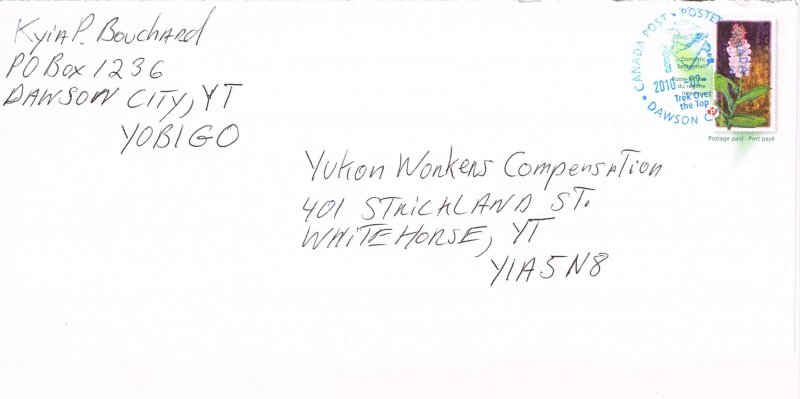 Kyia P. Bouchard
PO Box 1236
DAWSON CITY, YT
YOB1GO
CANADA POST • POSTES
Domestic
Lettermail
Poste-
du régime
2010 -02-
Trek Over
the Top
DAWSON C
Postage paid - Port payé
Yukon Workers Compensation
401 STRICKLAND ST.
WHITEHORSE, YT
Y1A5N8